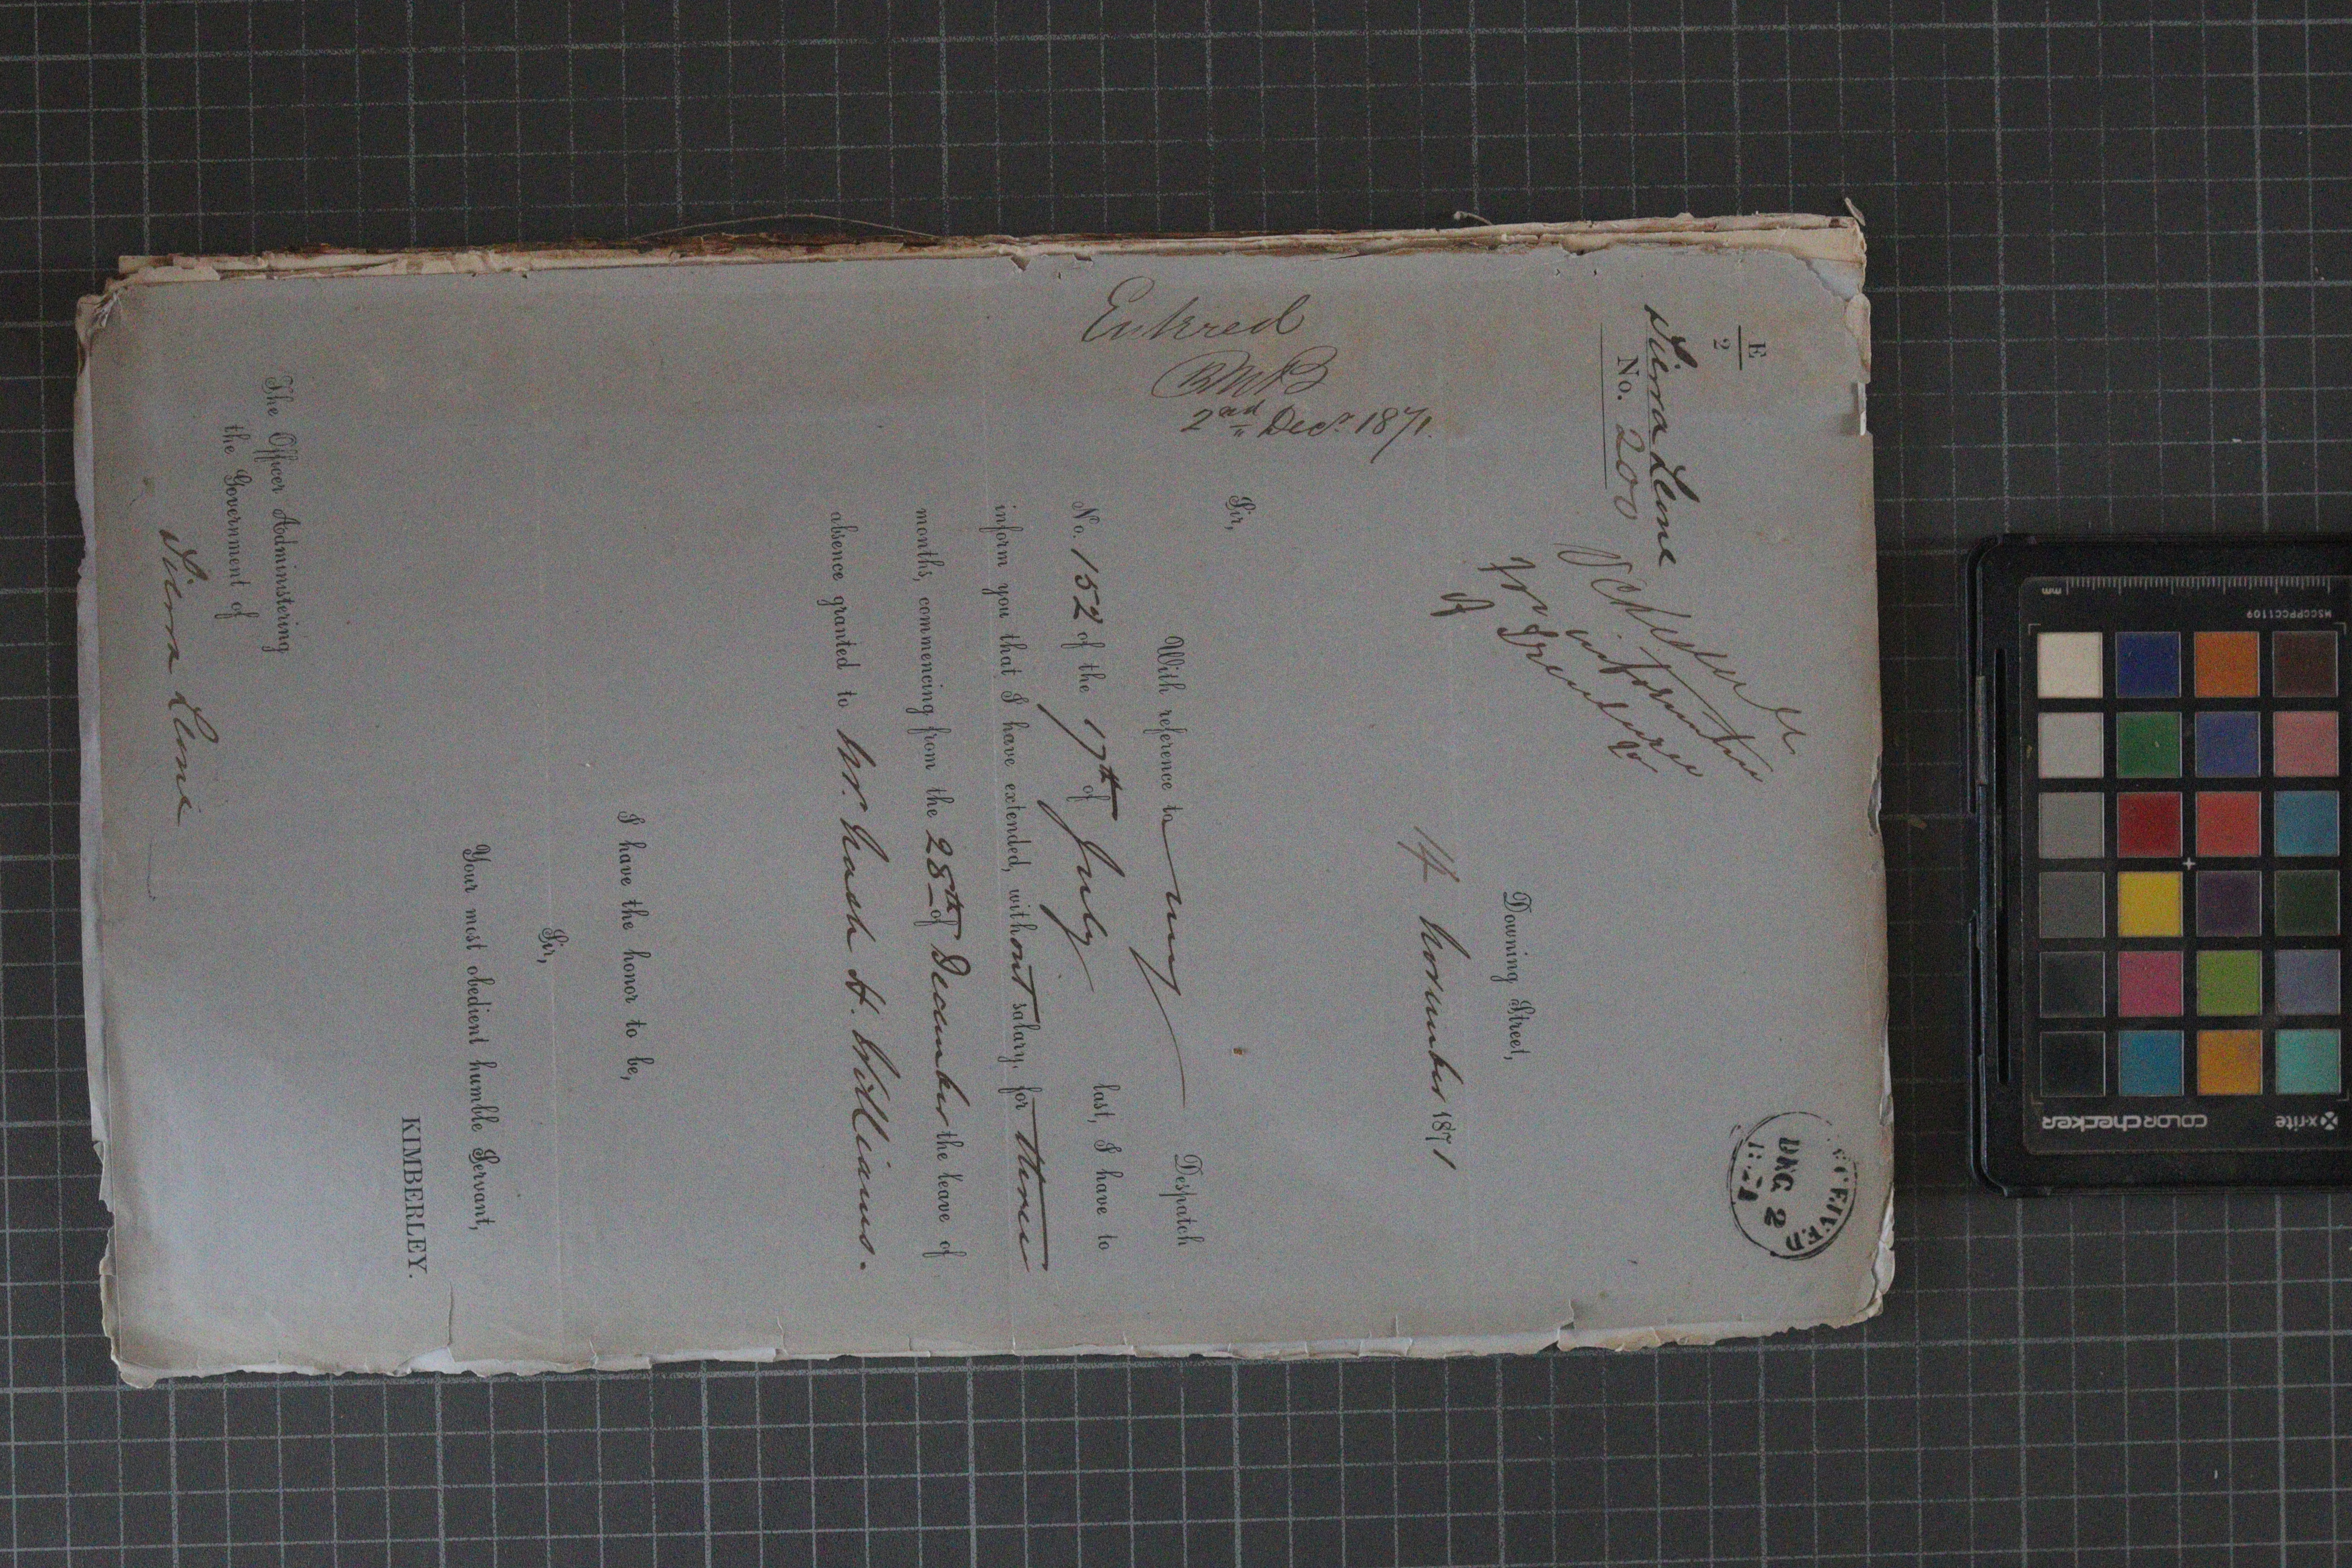 E
2
Sierra Leone
No. 200
RECEIVED
DEC 2
1871
Downing Street,
14 November 1871
Entred
2nd Decr. 1871.
Sir,
With reference to my Despatch
No. 152 of the 17th of July last, I have to
inform you that I have extended, without salary, for three
months, commencing from the 28th of December the leave of
absence granted to Mr. Nash H. Williams.
I have the honor to be,
Sir,
Your most obedient humble Servant,
KIMBERLEY.
The Officer Administering
the Government of
Sierra Leone
x-rite
colorchecker
MSCCPPCC1109
mm